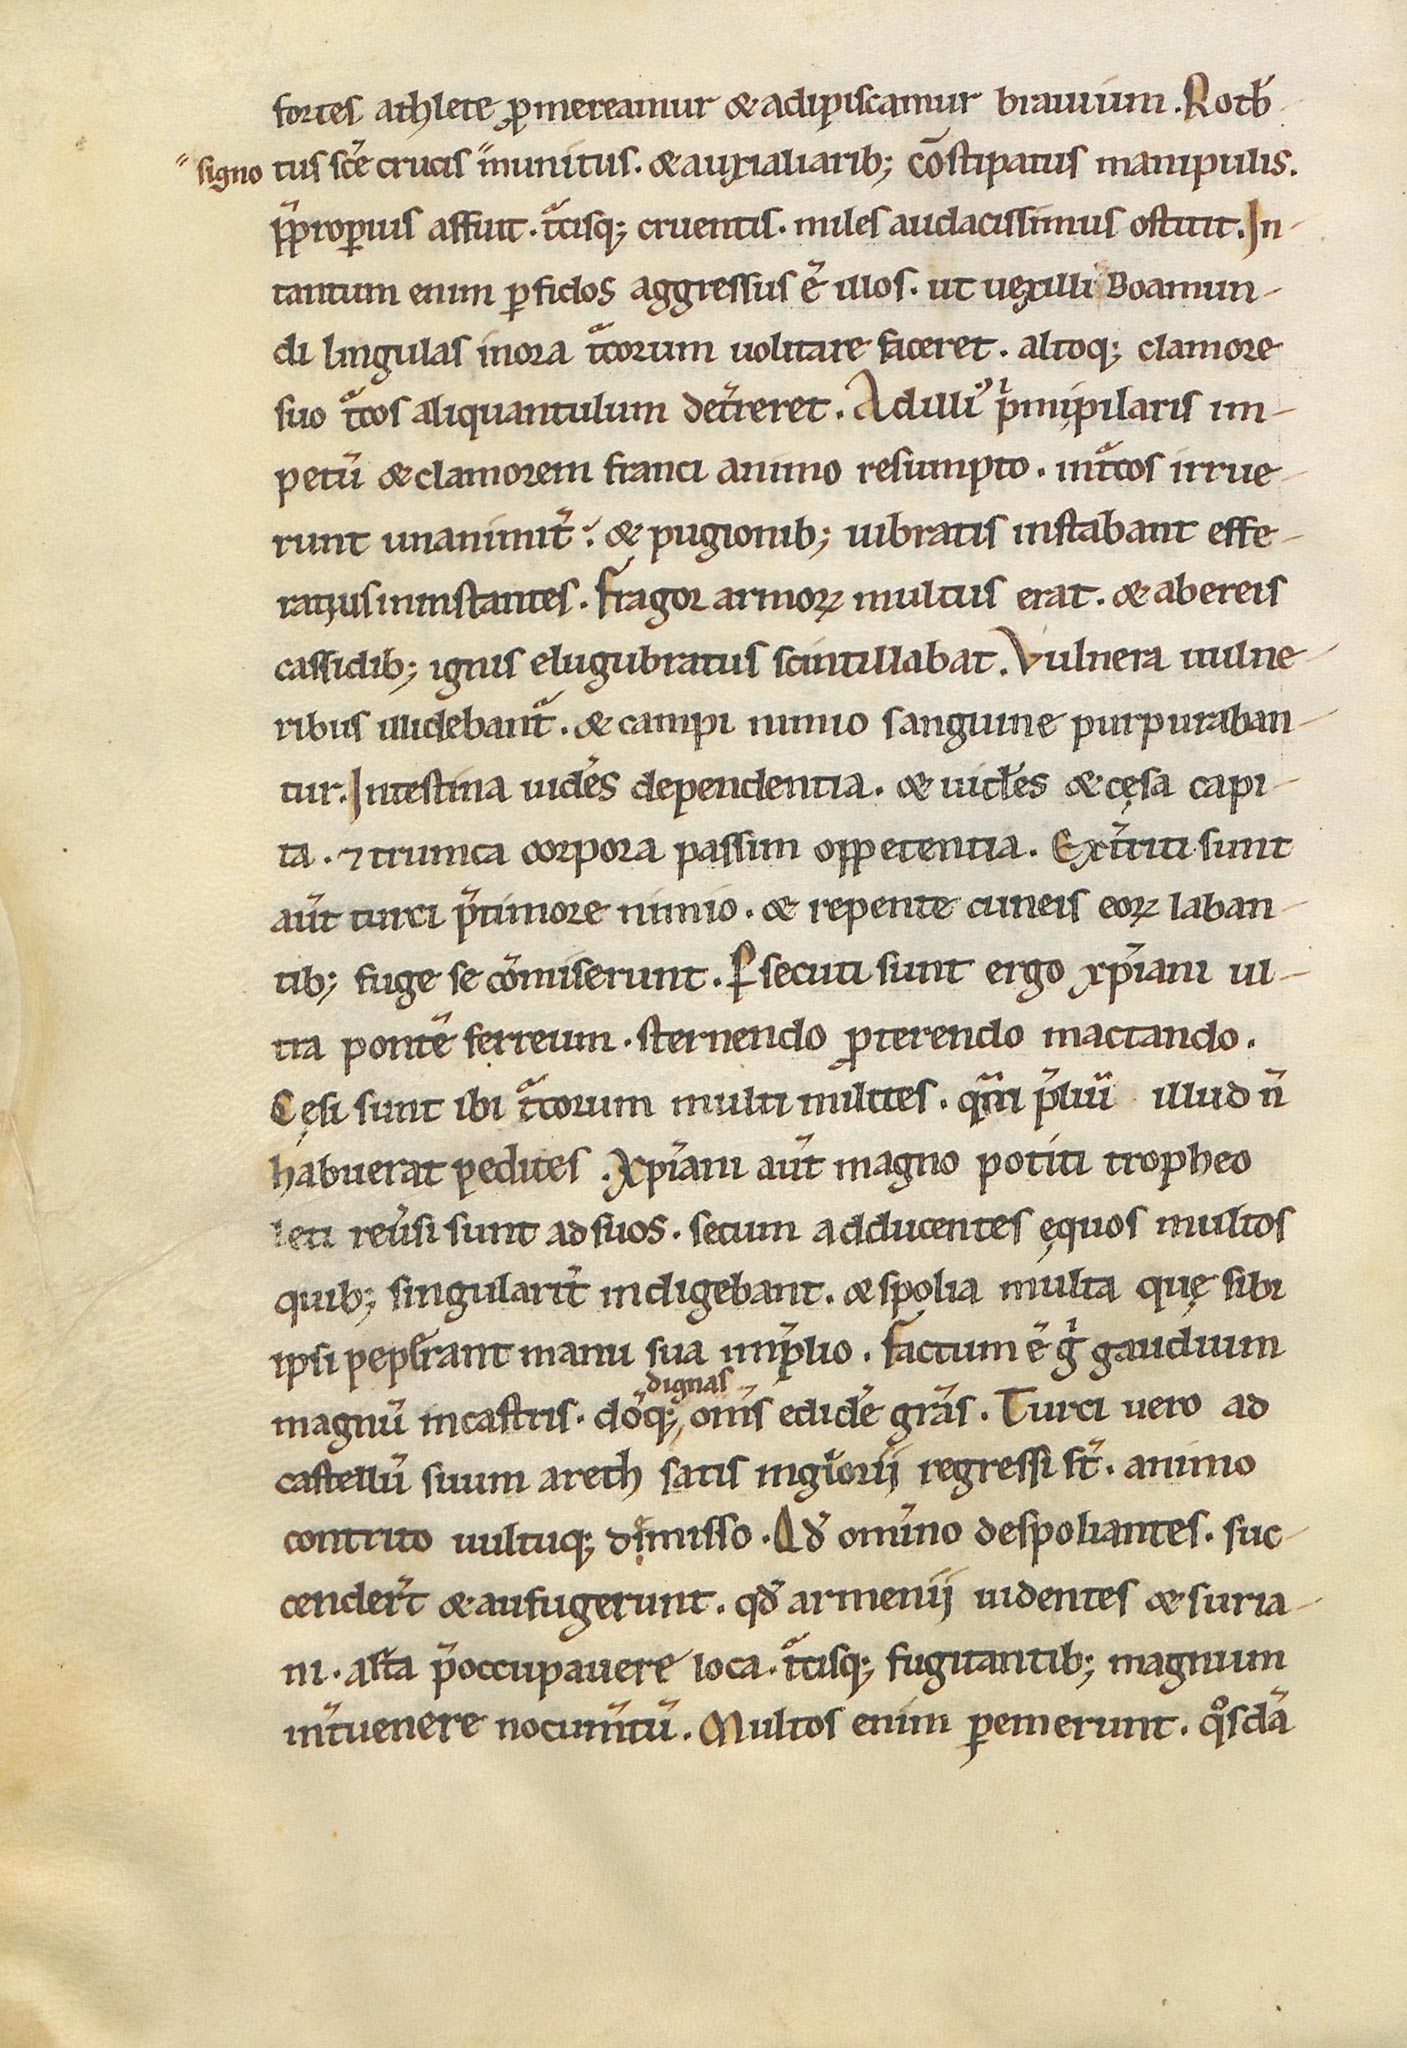 fortes athlete ꝓmereamur & adipiscamur brauium. Rotb̄
signo tus sc̄e crucis munitus. & auxialiarib; cōstipatus manipulis.
p̄ꝓperius affuit. tͣcisq; cruentis. miles audacissimus ostitit. In
tantum enim ꝑfidos aggressus ē illos. ut uexilli Boamun-
di lingulas in ora tͣcorum uolitare faceret. altoq; clamore
suo tͣcos aliquantulum det̄reret. Ad illiꝰ pͥmipilaris im-
petū & clamorem franci animo resumpto. in tͣcos irrue-
runt unanimit̄. & pugionib; uibratis instabant effe-
ratius in instantes. Fragor armoꝝ multus erat. & ab ereis
cassidib; ignis elugubratus scintillabat. Vulnera uulne-
ribus illidebantͣ. & campi nimio sanguine purpuraban-
tur. Intestina uidēs dependentia. & uidēs & cęsa capi-
ta. ⁊ trunca corpora passim oppetentia. Ext̄riti sunt
aūt turci p̄ timore nimio. & repente cuneis eoꝝ laban-
tib; fuge se cōmiserunt. Ꝑsecuti sunt ergo xp̄iani ul-
tra pontē ferreum. sternendo ꝓterendo mactando.
Cęsi sunt ibi tͣcorum multi milites. qͫm p̄liū illud n̄
habuerat pedites. Xp̄iani aūt magno potiti tropheo
leti reūsi sunt ad suos. secum adducentes ęquos multos
quib; singularit̄ indigebant. & spolia multa quę sibi
ipsi pepērant manu sua in p̄lio. Factum ē gͥ gaudium
magnū in castris. dōq; dignas om̄s edidē grās. Turci uero ad
castellū suum areth satis inglorii regressi st̄. animo
contrito uultuq; dimisso. Qd̄ omīno despoliantes. suc-
cender̄t & aufugerunt. qd̄ armenii uidentes & suria-
ni. arta p̄occupauere loca. tͣcisq; fugitantib; magnum
int̄uenere nocum̄tū. Multos enim ꝑemerunt. qͦsdā